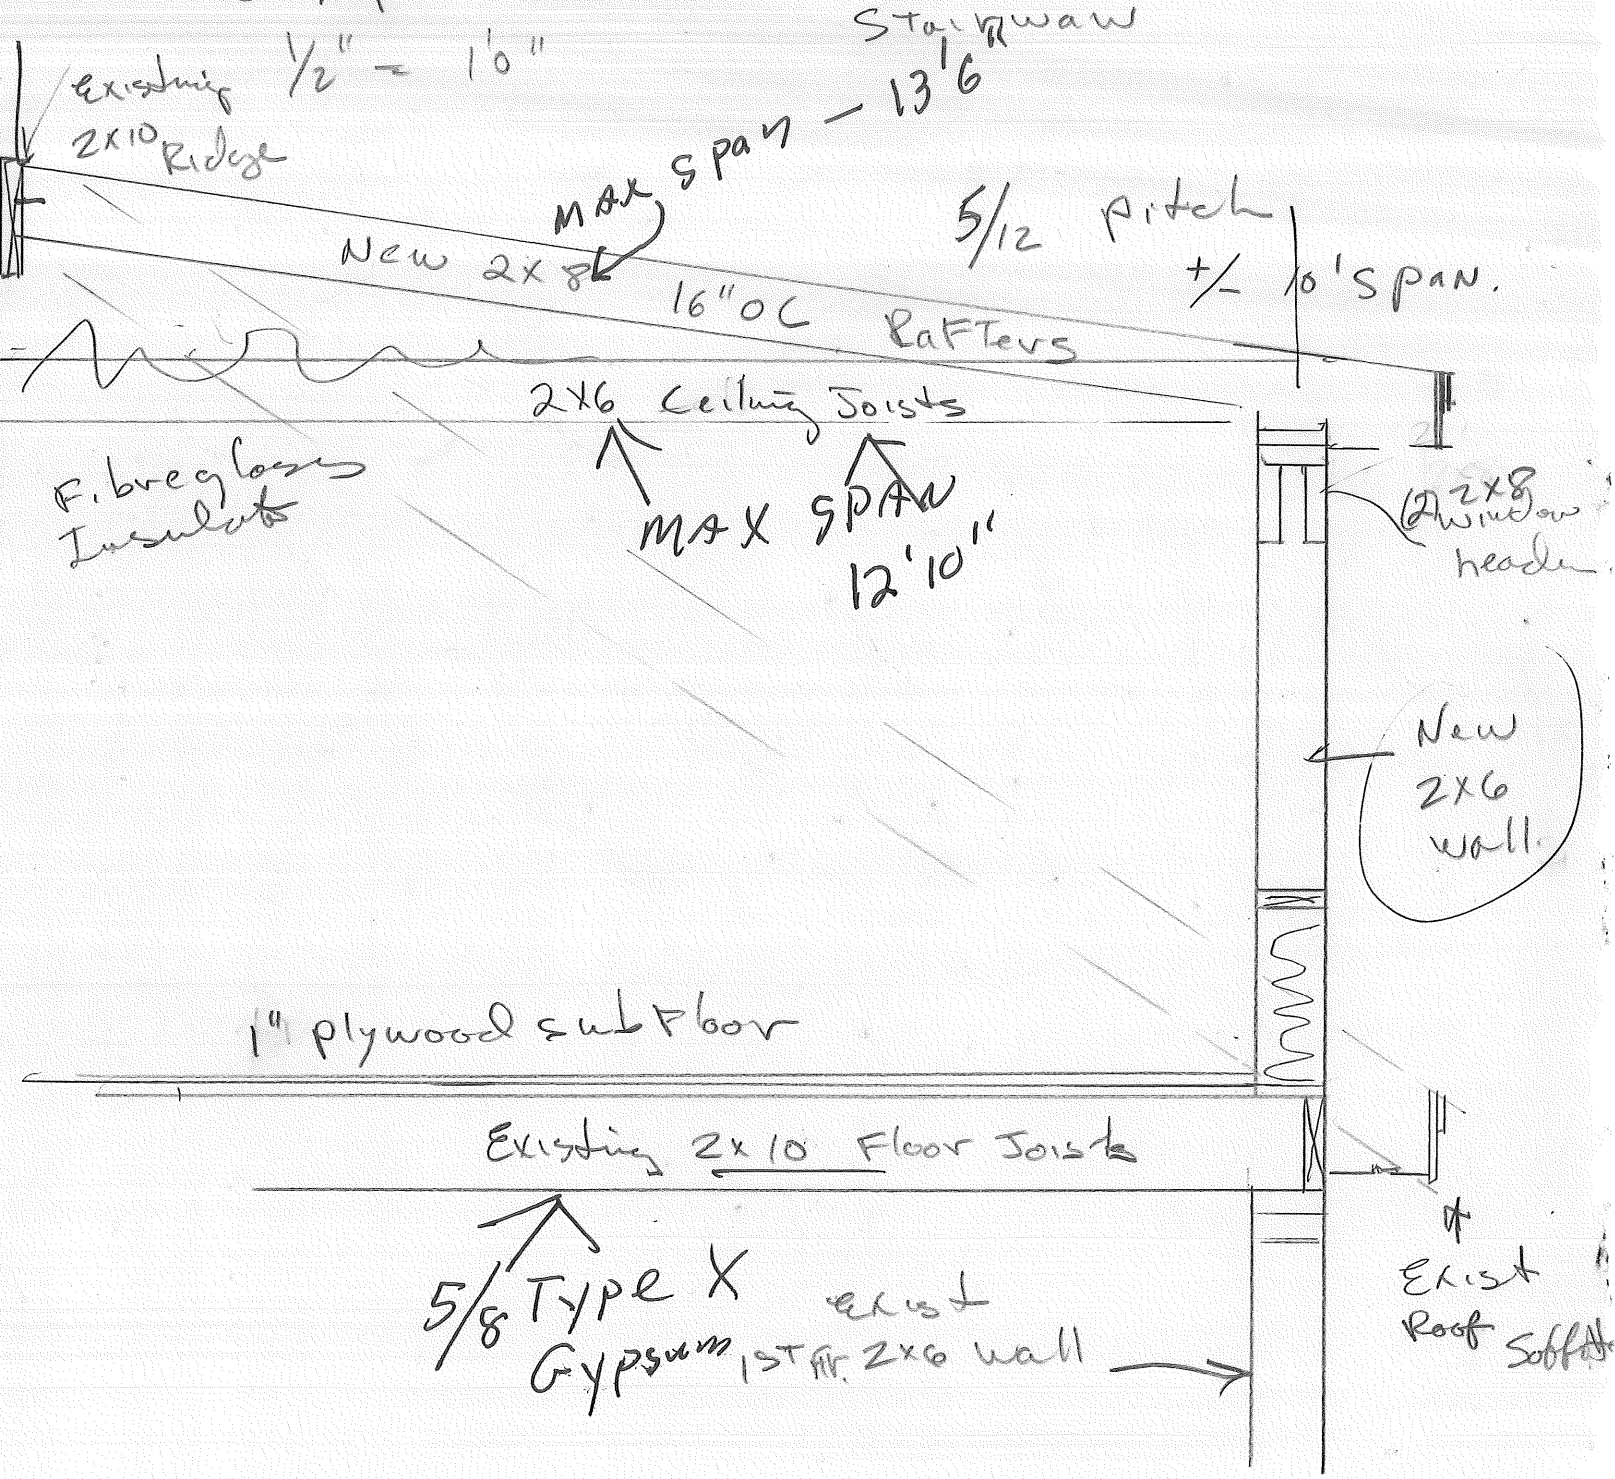 Stairwaw
1/2" = 1'0"
Existing
2x10 Ridge
MAX span - 13'6"
5/12 pitch
+/- 10' SPAN.
New 2x8
16" OC Rafters
2x6 Ceiling Joists
Fibreglass
Insulatn
MAX SPAN
12'10"
(2) 2x8
window
header
New
2x6
wall.
1" plywood subfloor
Existing 2x10 Floor Joists
5/8 Type X
Gypsum
Exist
1ST Flr. 2x6 wall
Exist
Roof Soffit